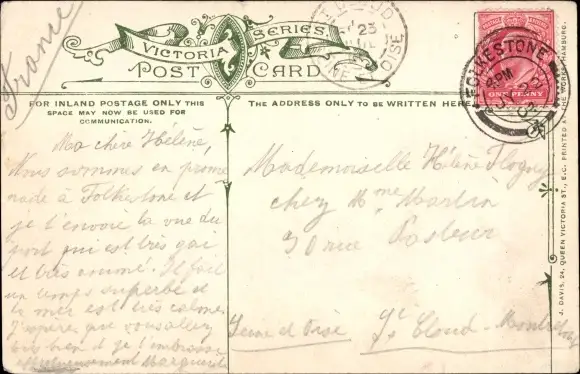 France
VICTORIA SERIES.
POST CARD
FOR INLAND POSTAGE ONLY THIS
SPACE MAY NOW BE USED FOR
COMMUNICATION.
THE ADDRESS ONLY TO BE WRITTEN HERE
FOLKESTONE
ONE PENNY
23
OISE
Ma chère Hélène,
Nous sommes en prome
nade à Folkestone et
je t'envoie la vue du
port qui est très gai
et très animé. Il fait
un temps superbe et
la mer est très calme
J'espère que vous allez
très bien et je t'embrasse
affectueusement Marguerite
Mademoiselle Hélène Flogny
chez Mme Martin
30 rue Pasteur
St Cloud - Montretout
Seine et Oise
J. DAVIS, 24, QUEEN VICTORIA ST., E.C. PRINTED AT THE WORKS, HAMBURG.